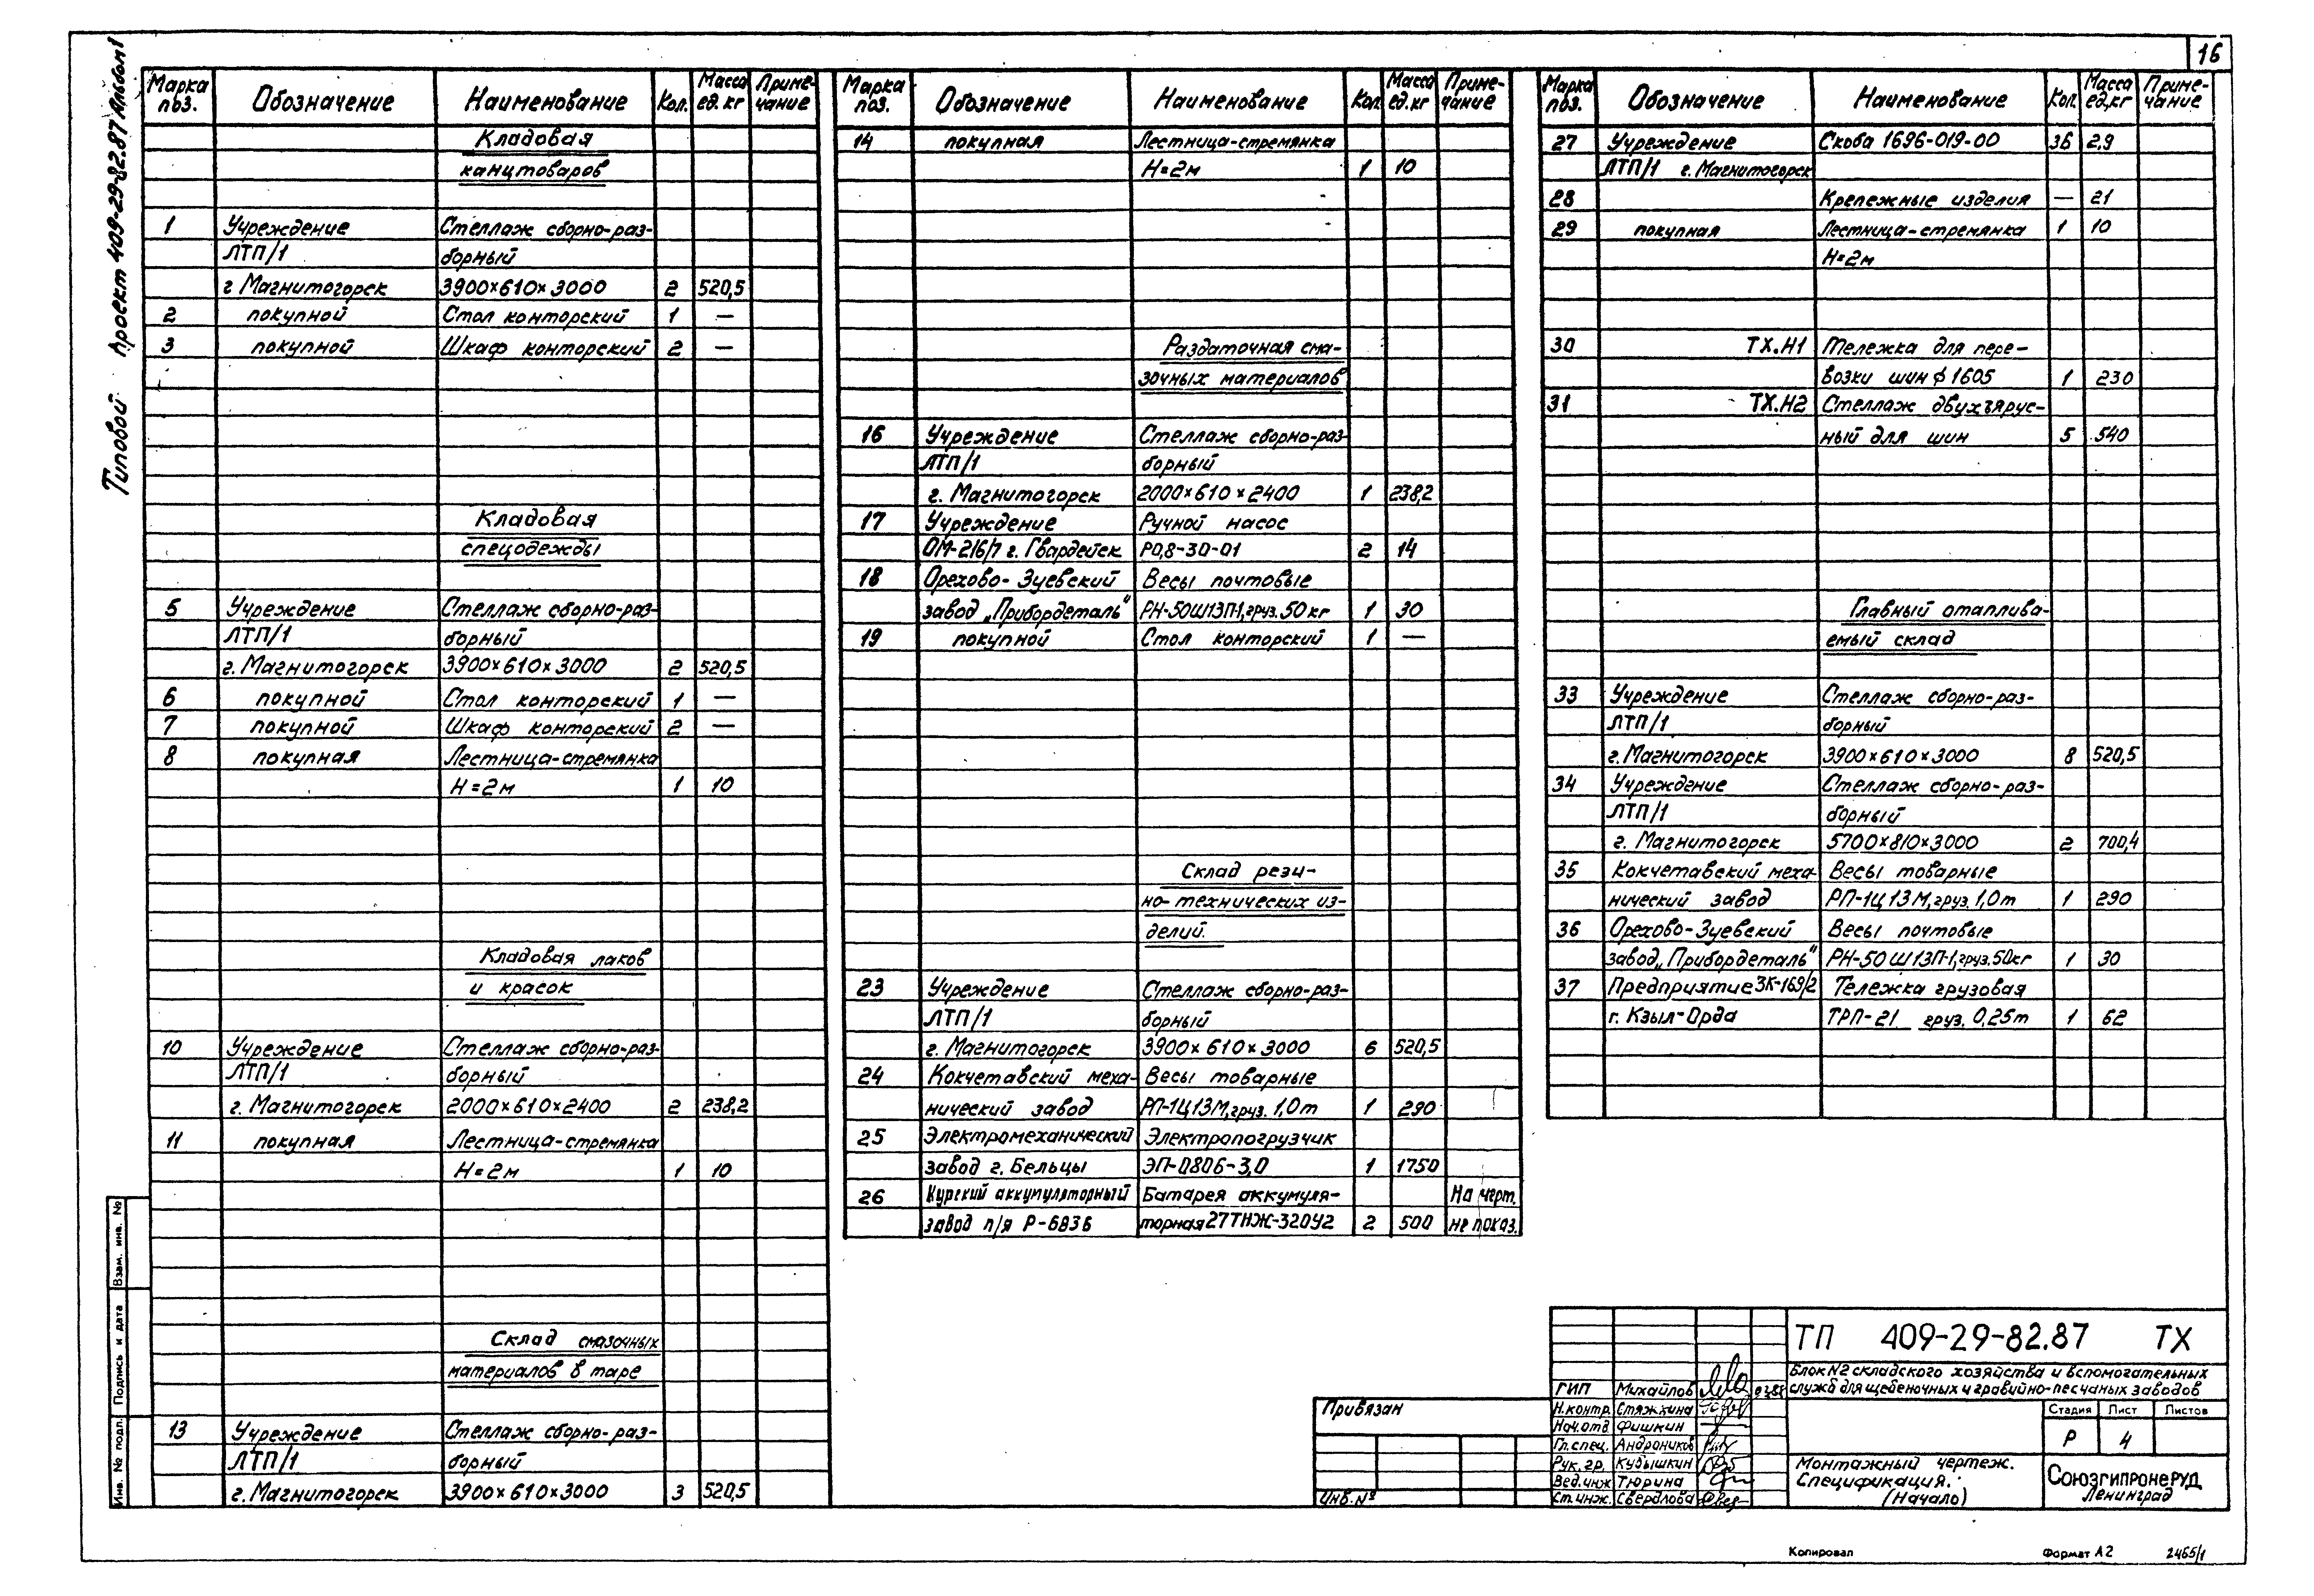 16
Типовой проект 409-29-82.87 Альбом 1
Марка поз. Обозначение Наименование Кол. Масса ед. кг Приме-чание
Кладовая
канцтоваров
1 Учреждение Стеллаж сборно-раз-
ЛТП/1 борный
г Магнитогорск 3900×610×3000 2 520,5
2 покупной Стол конторский 1 —
3 покупной Шкаф конторский 2 —
Кладовая
спецодежды
5 Учреждение Стеллаж сборно-раз-
ЛТП/1 борный
г. Магнитогорск 3900×610×3000 2 520,5
6 покупной Стол конторский 1 —
7 покупной Шкаф конторский 2 —
8 покупная Лестница-стремянка
Н=2м 1 10
Кладовая лаков
и красок
10 Учреждение Стеллаж сборно-раз-
ЛТП/1 борный
г. Магнитогорск 2000×610×2400 2 238,2
11 покупная Лестница-стремянка
Н=2м 1 10
Склад смазочных
материалов в таре
13 Учреждение Стеллаж сборно-раз-
ЛТП/1 борный
г. Магнитогорск 3900×610×3000 3 520,5
Марка поз. Обозначение Наименование Кол. Масса ед. кг Приме-чание
14 покупная Лестница-стремянка
Н=2м 1 10
Раздаточная сма-
зочных материалов
16 Учреждение Стеллаж сборно-раз-
ЛТП/1 борный
г. Магнитогорск 2000×610×2400 1 238,2
17 Учреждение Ручной насос
ОМ-216/7 г. Гвардейск Р0,8-30-01 2 14
18 Орехово-Зуевский Весы почтовые
завод „Прибордеталь" РН-50Ш13П-1, груз. 50 кг 1 30
19 покупной Стол конторский 1 —
Склад рези-
но-технических из-
делий.
23 Учреждение Стеллаж сборно-раз-
ЛТП/1 борный
г. Магнитогорск 3900×610×3000 6 520,5
24 Кокчетавский меха- Весы товарные
нический завод РП-1Ц13М, груз. 1,0т 1 290
25 Электромеханический Электропогрузчик
завод г. Бельцы ЭП-0806-3,0 1 1750
26 Курский аккумуляторный Батарея аккумуля- На черт.
завод п/я Р-6836 торная 27ТНЖ-320У2 2 500 не показ.
Марка поз. Обозначение Наименование Кол. Масса ед, кг Приме-чание
27 Учреждение Скоба 1696-019-00 36 2,9
ЛТП/1 г. Магнитогорск
28 Крепежные изделия — 21
29 покупная Лестница-стремянка 1 10
Н=2м
30 ТХ.Н1 Тележка для пере-
возки шин ф 1605 1 230
31 ТХ.Н2 Стеллаж двухъярус-
ный для шин 5 540
Главный отаплива-
емый склад
33 Учреждение Стеллаж сборно-раз-
ЛТП/1 борный
г. Магнитогорск 3900×610×3000 8 520,5
34 Учреждение Стеллаж сборно-раз-
ЛТП/1 борный
г. Магнитогорск 5700×810×3000 2 700,4
35 Кокчетавский меха- Весы товарные
нический завод РП-1Ц13М, груз. 1,0т 1 290
36 Орехово-Зуевский Весы почтовые
завод „Прибордеталь" РН-50Ш13П-1, груз. 50кг 1 30
37 Предприятие ЗК-169/2 Тележка грузовая
г. Кзыл-Орда ТРП-21 груз. 0,25т 1 62
Взам. инв. №
Подпись и дата
Инв. № подл.
Привязан
Инв. №
ТП 409-29-82.87 ТХ
Блок N2 складского хозяйства и вспомогательных
служб для щебеночных и гравийно-песчаных заводов
ГИП Михайлов
Н.контр. Стяжкина
Нач.отд Фишкин
Гл.спец. Андроников
Рук. гр. Кудышкин
Вед.инж Тюрина
Ст.инж. Свердлова
Стадия Лист Листов
Р 4
Монтажный чертеж.
Спецификация.
(Начало)
СОЮЗГИПРОНЕРУД
Ленинград
Копировал Формат А2 2465/1